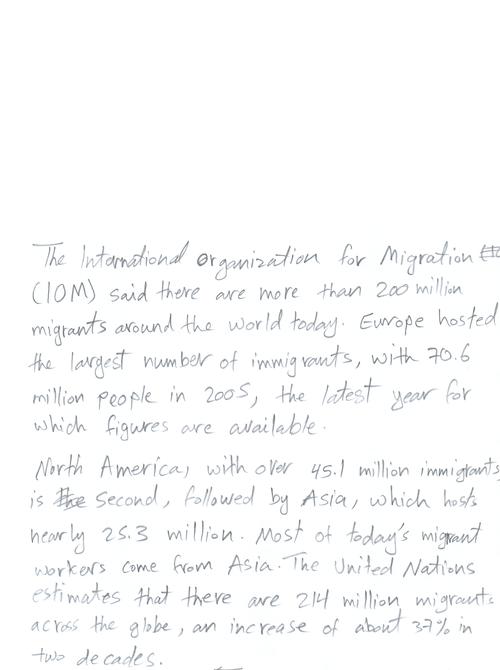 The International Organization for Migration
(IOM) said there are more than 200 million
migrants around the world today. Europe hosted
the largest number of immigrants, with 70.6
million people in 2005, the latest year for
which figures are available.
North America, with over 45.1 million immigrants
is second, followed by Asia, which hosts
nearly 25.3 million. Most of today's migrant
workers come from Asia. The United Nations
estimates that there are 214 million migrants
across the globe, an increase of about 37% in
two decades.